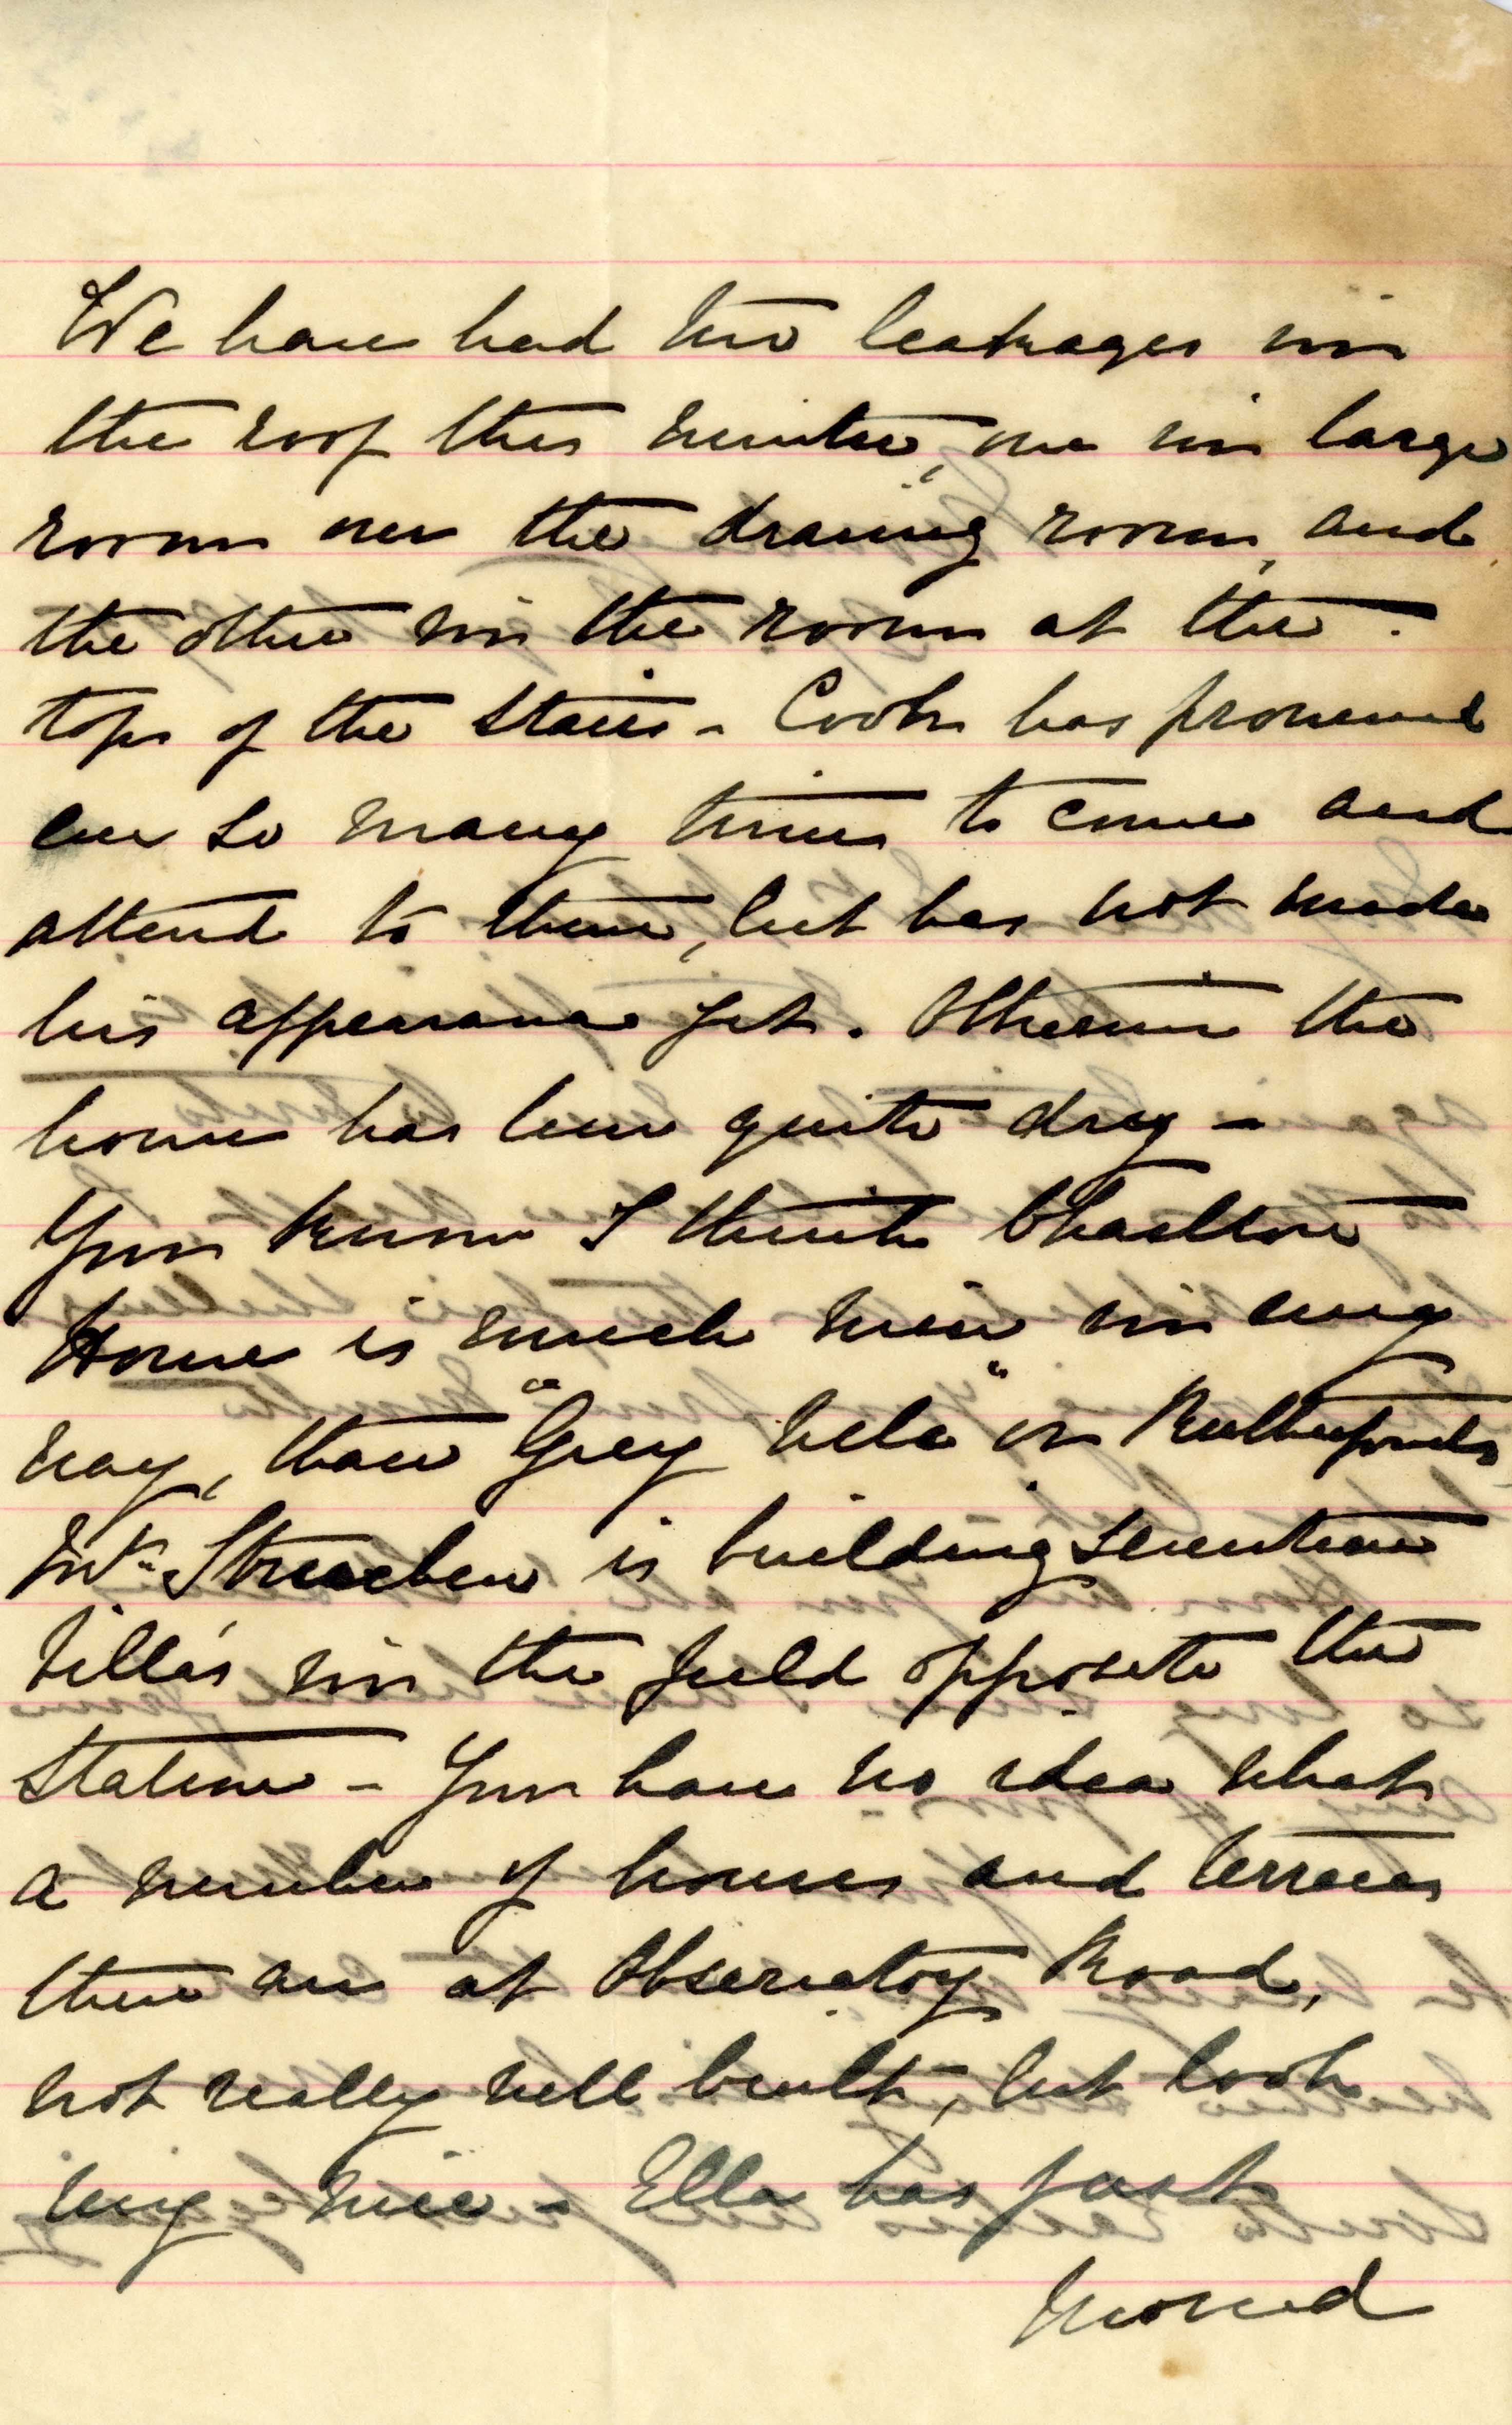 We have had two leakages in
the roof this winter, one in large
room over the drawing room, and
the other in the room at the
top of the stairs - Cook has promised
ever so many times to come and
attend to them, but has not made
his appearance yet. Otherwise the
house has been quite dry -
You know I think Charlton
House is much nicer in every
way, than "Grey Villa" or Rutherfords
Mr. Struben is building seventeen
Villa's in the field opposite the
Station - You have no idea what
a number of houses and terraces
there are at Observatory Road,
not really well built, but look
ing nice - Ella has just
moved